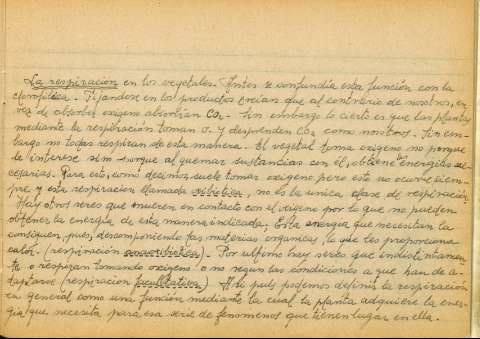 La respiración en los vegetales. Antes se confundía esta función con la
clorofílica. Fijandose en los productos creían que al contrario de nosotros, en
vez de absorber oxigeno absorbían CO2. Sin embargo lo cierto es que las plantas
mediante la respiración toman O. y desprenden CO2 como nosotros. Sin em-
bargo no todas respiran de esta manera. El vegetal toma oxigeno no porque
le interese sino porque al quemar sustancias con él, obtiene las energías ne-
cesarias. Para esto, como decimos, suele tomar oxigeno pero esto no ocurre siem-
pre y esta respiración llamada es la unica clase de respiración.
Hay otros seres que mueren en contacto con el oxigeno por lo que no pueden
obtener la energía de esta manera indicada. Esta energía que necesitan la
consiguen, pues, descomponiendo las materias organicas, lo que les proporciona
calor. (respiración anaerobica). Por ultimo hay seres que indistintamen-
te o respiran tomando oxigeno o no segun las condiciones a que han de a-
daptarse (respiracion facultativa). Así pues podemos definir la respiración
en general como una función mediante la cual la planta adquiere la ener-
gía que necesita para esa serie de fenomenos que tienen lugar en ella.